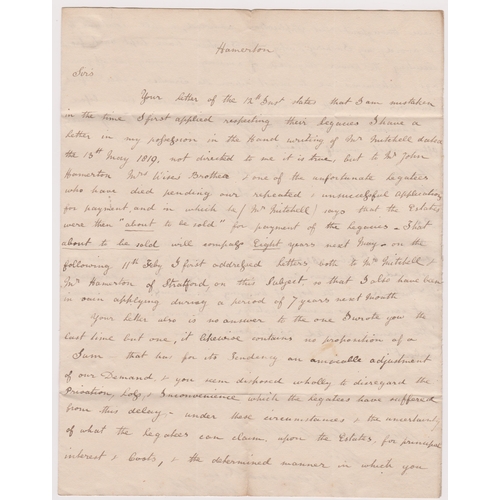 Hamerton
Sirs
Your letter of the 12th Inst states that I am mistaken
in the time I first applied respecting their Legacies I have a
letter in my possession in the Hand writing of Mr Mitchell dated
the 13th May 1819, not directed to me it is true, but to Mr John
Hamerton Mrs Brother & one of the unfortunate Legatees
who have died pending our repeated & unsuccessful applications
for payment, and in which he (Mr Mitchell) says that the Estates
were then "about to be sold" for payment of the Legacies - That
about to be sold will compleat Eight years next May - on the
following 11th Feby I first addressed letters both to Mr Mitchell &
Mr Hamerton of Stratford, on this Subject, so that I also have been
in own applying during a period of 7 years next Month
Your letter also is no answer to the one I wrote you the
last time but one, it likewise contains no proposition of a
Sum - that has for its tendency an amicable adjustment
of our Demand, & you seem disposed wholly to disregard the
Privation, Loss, & Inconvenience which the Legatees have suffered
from this delay - under these circumstances & the uncertainty
of what the Legatees can claim, upon the Estates, for principal
interest & Costs, & the determined manner in which you